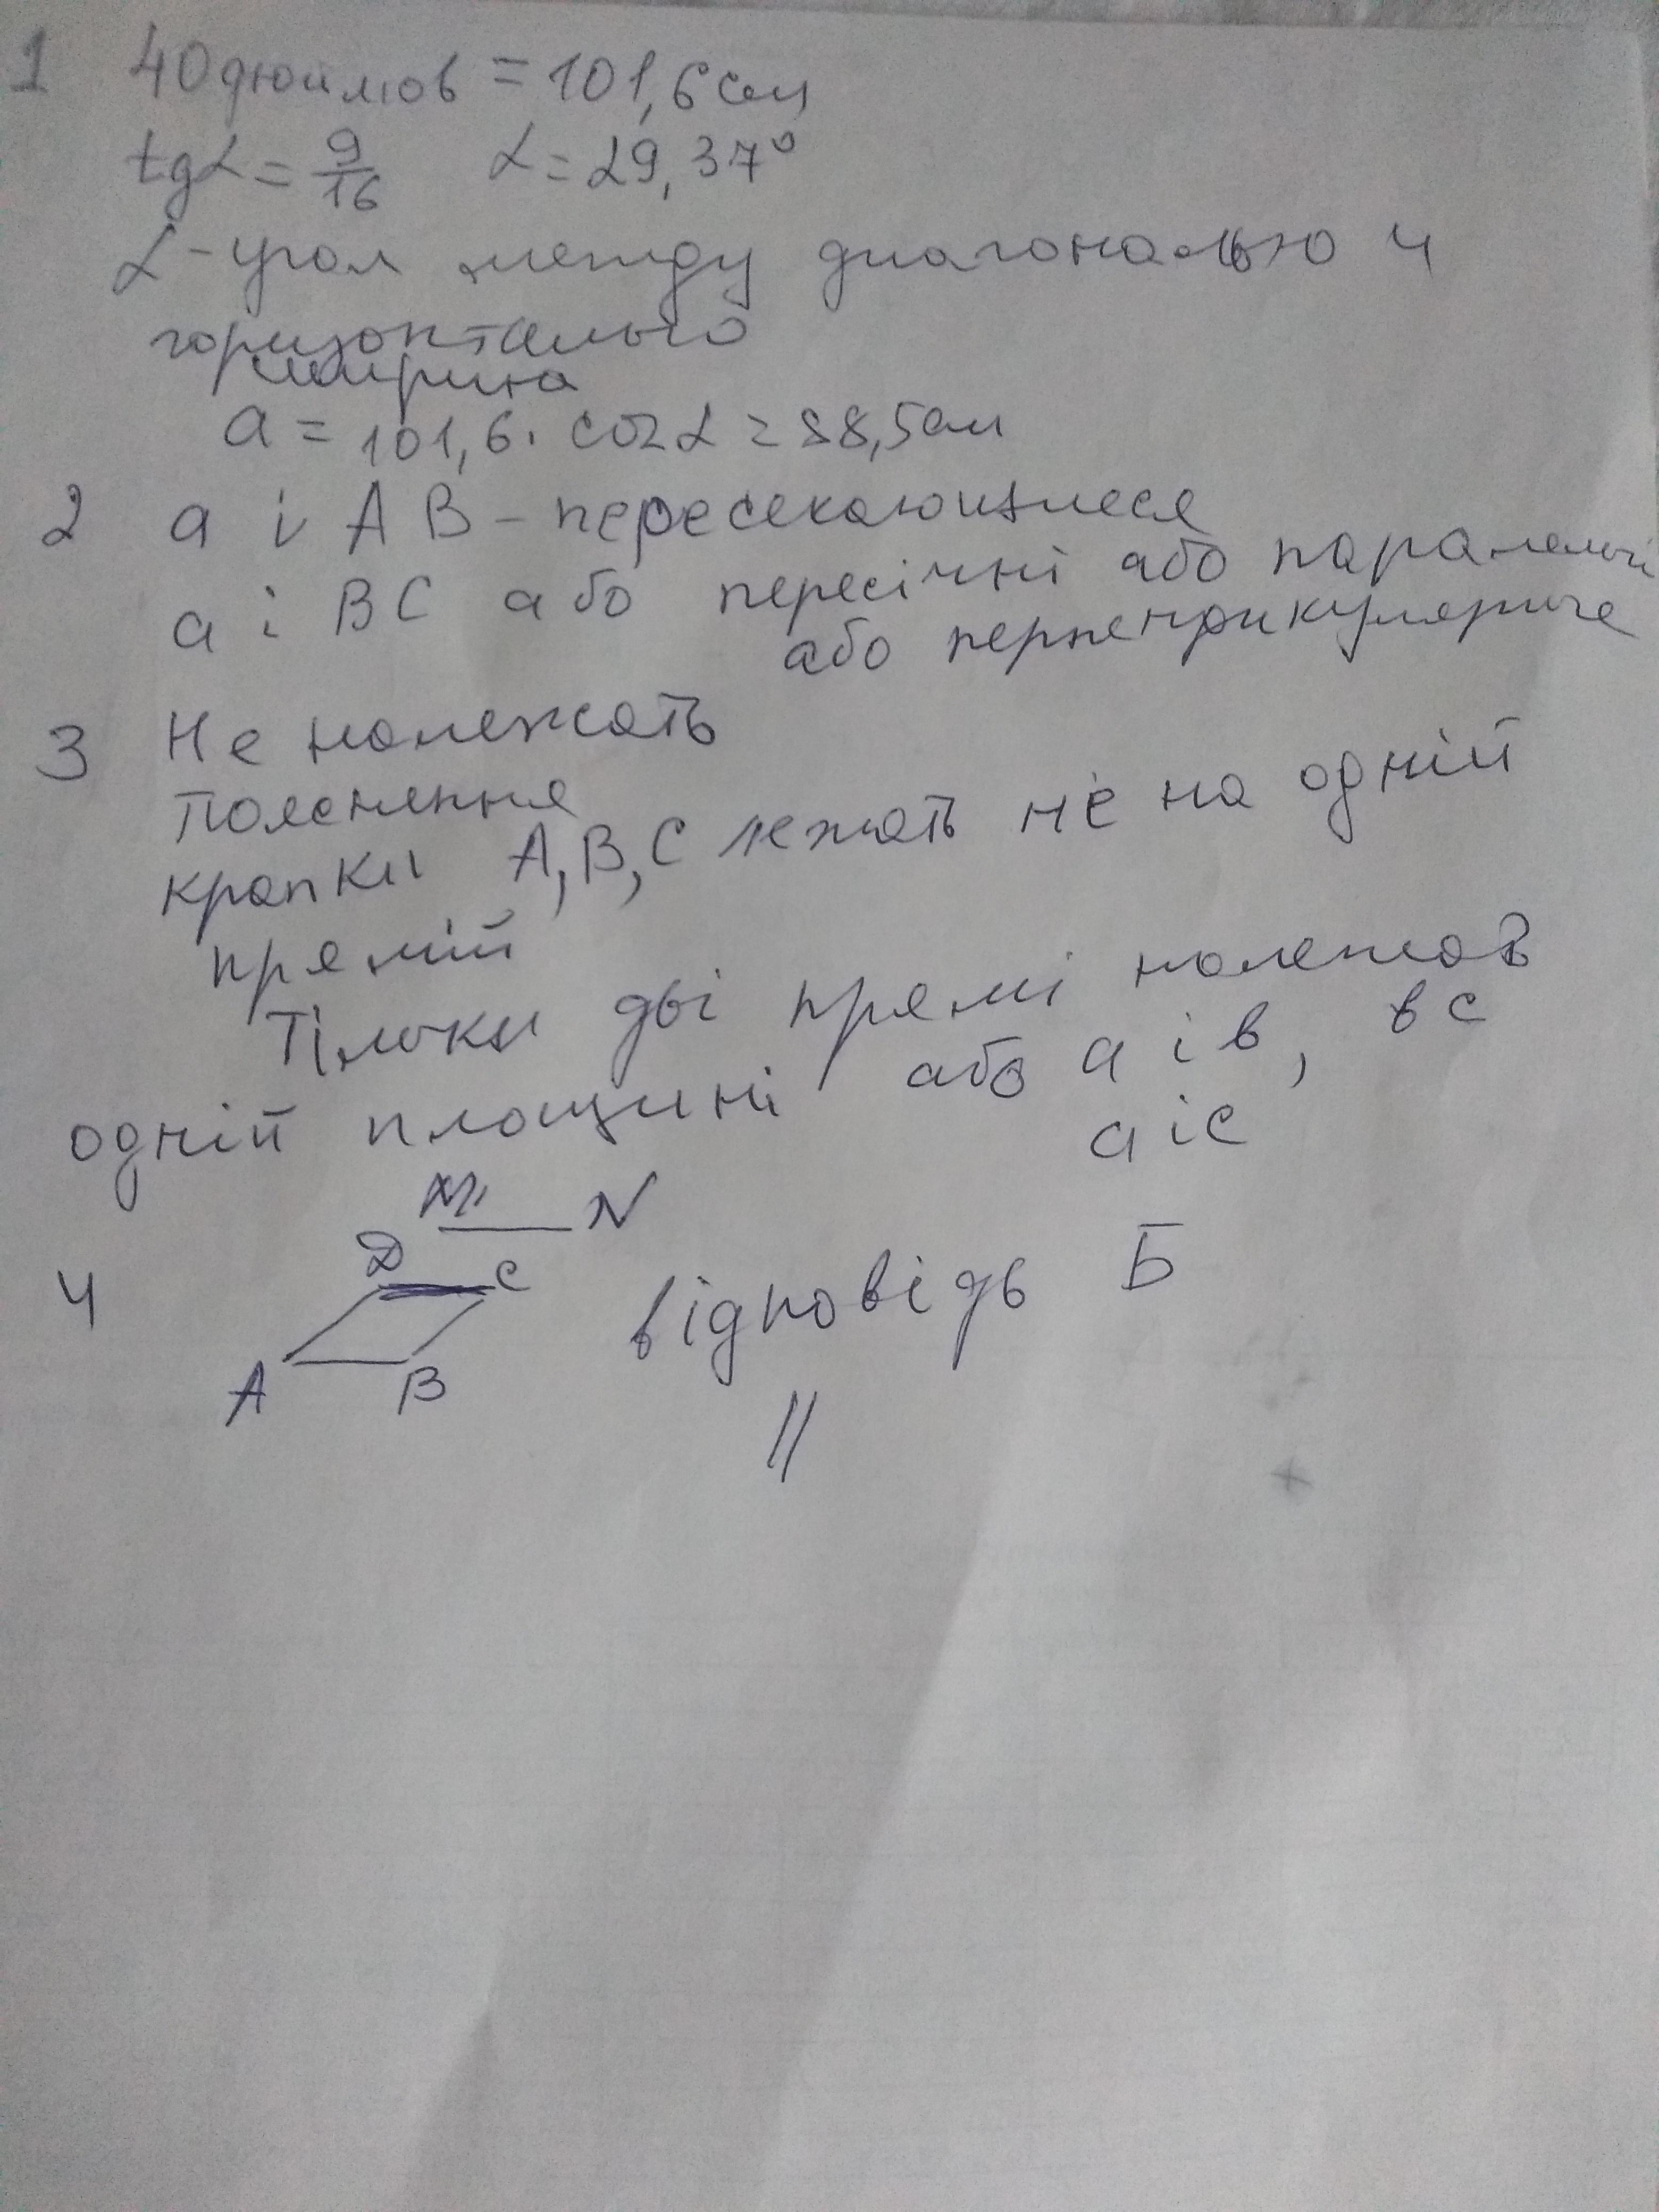 1 40 дюймов = 101,6 см
tgα = 9/16 α = 29,37°
α - угол между диагональю и
горизонталью
ширина
a = 101,6 · cos α = 88,5 см
2 a і AB - пересекающиеся
a і BC або пересічні або паралельні
або перпендикулярные
3 Не належать
Пояснення
крапки A, B, C лежать не на одній
прямій
Тільки дві прямі належат
одній площині або a і в, в с
a і c
M N
D C
4 відповідь Б
A B
||